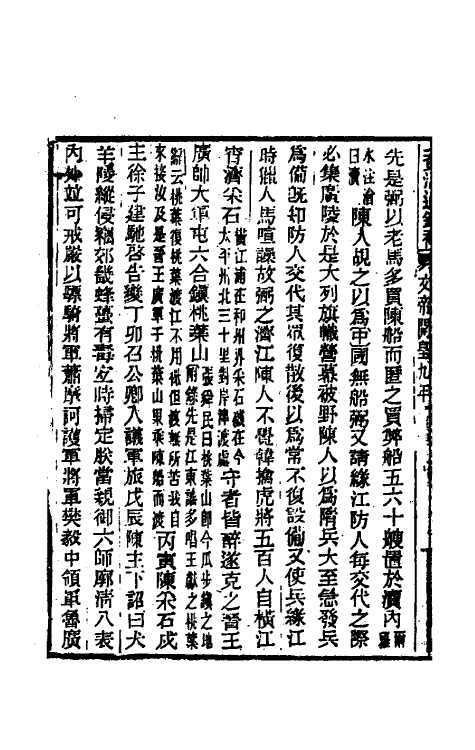 先是弼以老馬多買陳船而匿之買弊船五六十艘置於瀆内爾雅
水注澮曰瀆陳人覘之以爲中國無船弼又請緣江防人每交代之際
必集廣陵於是大列旗幟營幕被野陳人以爲隋兵大至急發兵
爲備既知防人交代其衆復散後以爲常不復設備又使兵緣江
時獵人馬喧譟故弼之濟江陳人不覺韓擒虎將五百人自橫江
宵濟采石橫江浦在和州界采石磯在今太平州北三十里對岸津渡處守者皆醉遂克之晉王
廣帥大軍屯六合鎮桃葉山張舜民曰桃葉山卽今瓜步鎮之地附錄先是江東謠多唱王獻之桃葉
辭云桃葉復桃葉渡江不用楫但渡無所苦我自來接汝及是晉王廣軍于桃葉山果乘陳船而渡丙寅陳采石戍
主徐子建馳啓告變丁卯召公卿入議軍旅戊辰陳主下詔曰犬
羊陵縱侵竊郊畿蜂蠆有毒宜時掃定朕當親御六師廓清八表
内外並可戒嚴以驃騎將軍蕭摩訶護軍將軍樊毅中領軍魯廣